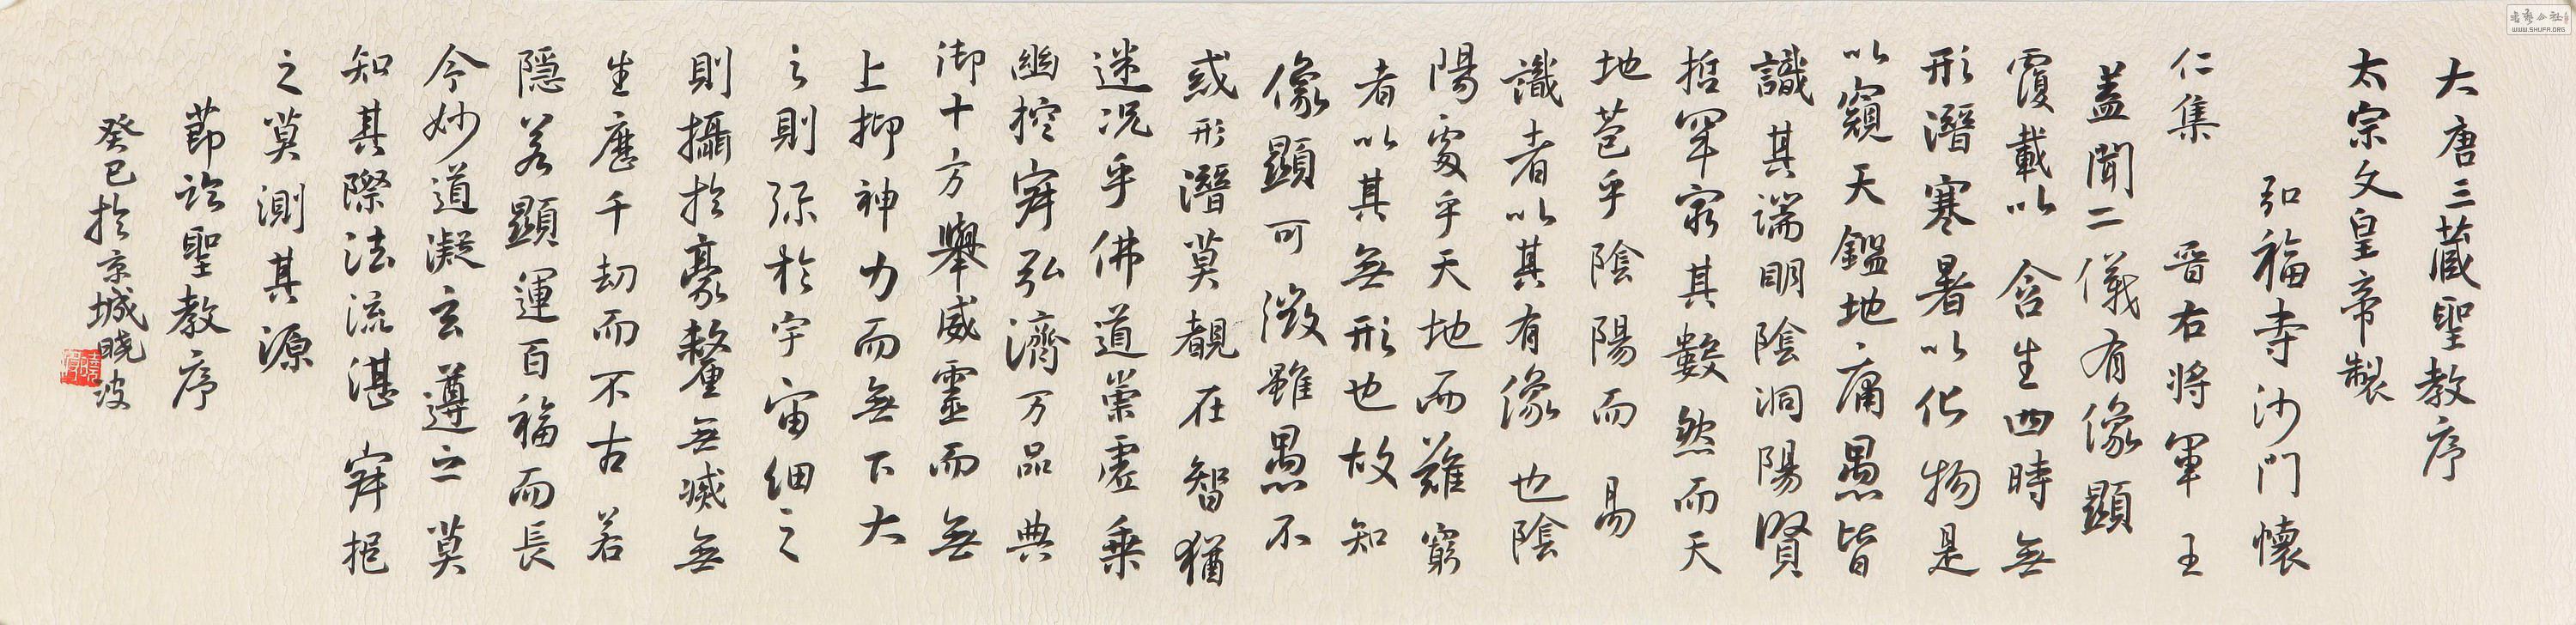 大唐三藏聖教序
太宗文皇帝製
弘福寺沙門懷
仁集 晉右將軍王
蓋聞二儀有像顯
覆載以含生四時無
形潛寒暑以化物是
以窺天鑑地庸愚皆
識其端明陰洞陽賢
哲罕窮其數然而天
地苞乎陰陽而易
識者以其有像也陰
陽處乎天地而難窮
者以其無形也故知
像顯可徵雖愚不
惑形潛莫覩在智猶
迷況乎佛道崇虛乘
幽控寂弘濟万品典
御十方舉威靈而無
上抑神力而無下大
之則彌於宇宙細之
則攝於豪釐無滅無
生歷千劫而不古若
隱若顯運百福而長
今妙道凝玄遵之莫
知其際法流湛寂挹
之莫測其源
節臨聖教序
癸巳於京城晓波
WWW.SHUFA.ORG